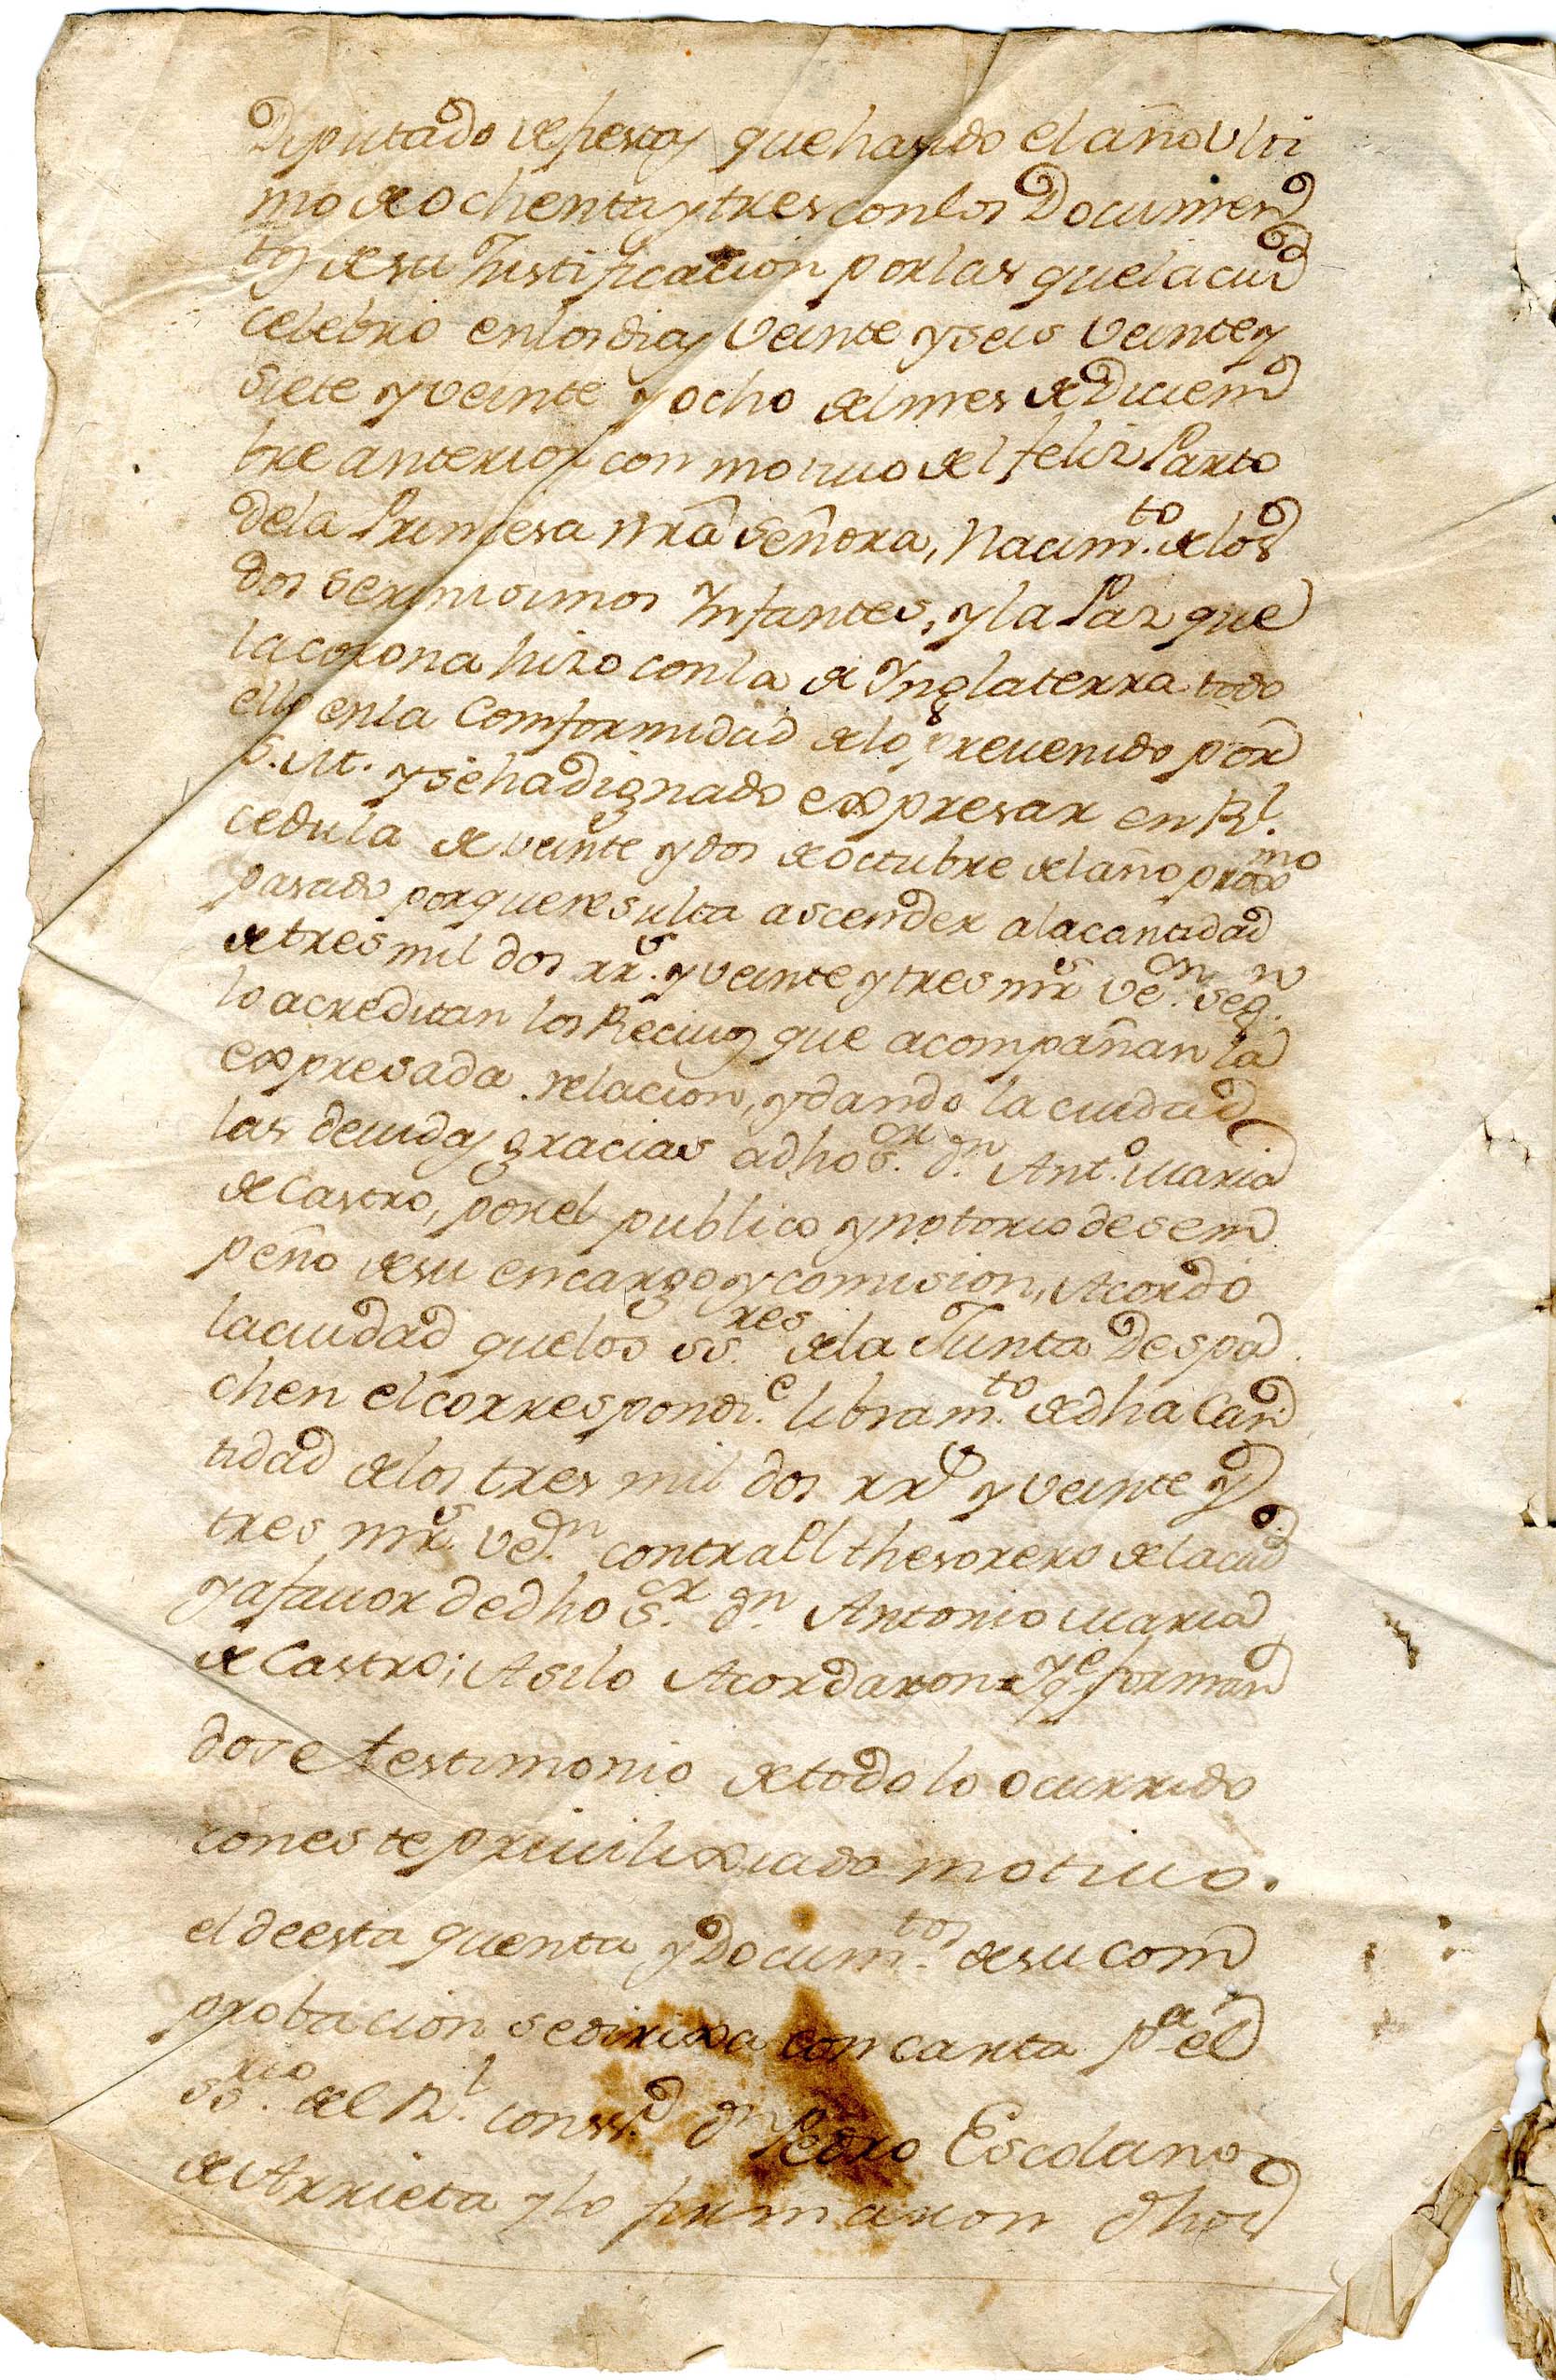 Diputado de fiestas que ha sido el año ulti
mo de ochenta y tres con los Documen
tos de su Justificacion por las que la ciud
celebro en los dias veinte y seis veinte y
siete y veinte y ocho del mes de Diciem
bre anterior con motivo del feliz Parto
de la Princesa nrâ Señora, Nacim.to de los
dos serenisimos Infantes, y la Paz que
la corona hizo con la de Inglaterra todo
ello en la Comformidad de lo prevenido por
S. M. y se ha dignado expresar en Rl.
cedula de veinte y dos de octubre del año proxmo
pasado por que resulta ascender a la cantidad
de tres mil dos rr.s y veinte y tres mrs ve.on seg.n
lo acreditan los Recivos que acompañan la
expresada relacion, y dando la ciudad
las devidas gracias a dho S.or d.n Ant.o Maria
de Castro, por el publico y notorio desem
peño de su encargo y comision, Acordó
la ciudad que los ss.res de la Junta Despa
chen el correspondi.e libram.to de dha Can
tidad de los tres mil dos rrs y veinte y
tres mrs. ve.on contra el thesorero de la ciud
y a favor de dho S.r d.n Antonio Maria
de Castro; Asi lo Acordaron = Y q.e forman
dose testimonio de todo lo ocurrido
con este privilixiado motivo.
el de esta quenta y Docum.tos de su com
probacion se dirixa con carta p.a el
ss.rio del R.l conss.o dn Pedro Escolano
de Arrieta y lo firmaron dhos